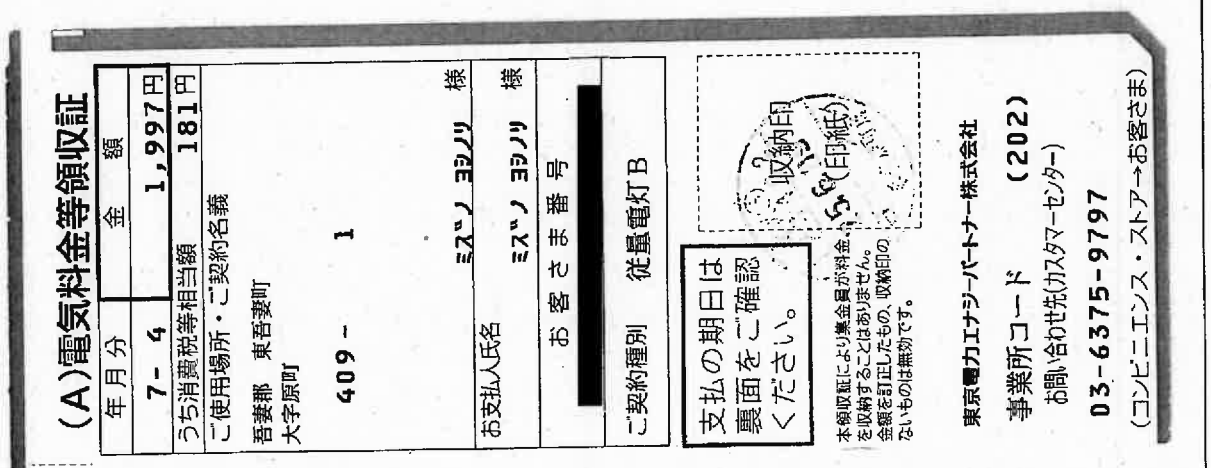 (A)電気料金等領収証
年月分 金額
7- 4 1,997円
うち消費税等相当額 181円
ご使用場所・ご契約名義
吾妻郡 東吾妻町
大字原町
409- 1
ミズノ ヨシノリ 様
お支払人氏名
ミズノ ヨシノリ 様
お客さま番号
ご契約種別 従量電灯B
支払の期日は
裏面をご確認
ください。
収納印
(印紙)
本領収証により集金員が料金
を収納することはありません。
金額を訂正したもの、収納印の
ないものは無効です。
東京電力エナジーパートナー株式会社
事業所コード (202)
お問い合わせ先(カスタマーセンター)
03-6375-9797
(コンビニエンス・ストアー→お客さま)